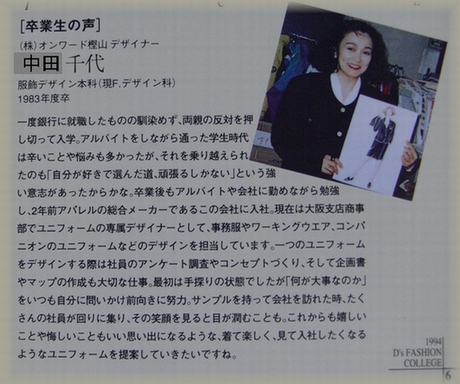 [卒業生の声]
(株)オンワード樫山 デザイナー
中田千代
服飾デザイン本科(現F.デザイン科)
1983年度卒
一度銀行に就職したものの馴染めず、両親の反対を押
し切って入学。アルバイトをしながら通った学生時代
は辛いことや悩みも多かったが、それを乗り越えられ
たのも「自分が好きで選んだ道、頑張るしかない」という強
い意志があったからかな。卒業後もアルバイトや会社に勤めながら勉強
し、2年前アパレルの総合メーカーであるこの会社に入社。現在は大阪支店商事
部でユニフォームの専属デザイナーとして、事務服やワーキングウエア、コンパ
ニオンのユニフォームなどのデザインを担当しています。一つのユニフォーム
をデザインする際は社員のアンケート調査やコンセプトづくり、そして企画書
やマップの作成も大切な仕事。最初は手探りの状態でしたが「何が大事なのか」
をいつも自分に問いかけ前向きに努力。サンプルを持って会社を訪れた時、たく
さんの社員が回りに集り、その笑顔を見ると目が潤むことも。これからも嬉しい
ことや悔しいこともいい思い出になるような、着て楽しく、見て入社したくなる
ようなユニフォームを提案していきたいですね。
1994
D's FASHION
COLLEGE
6